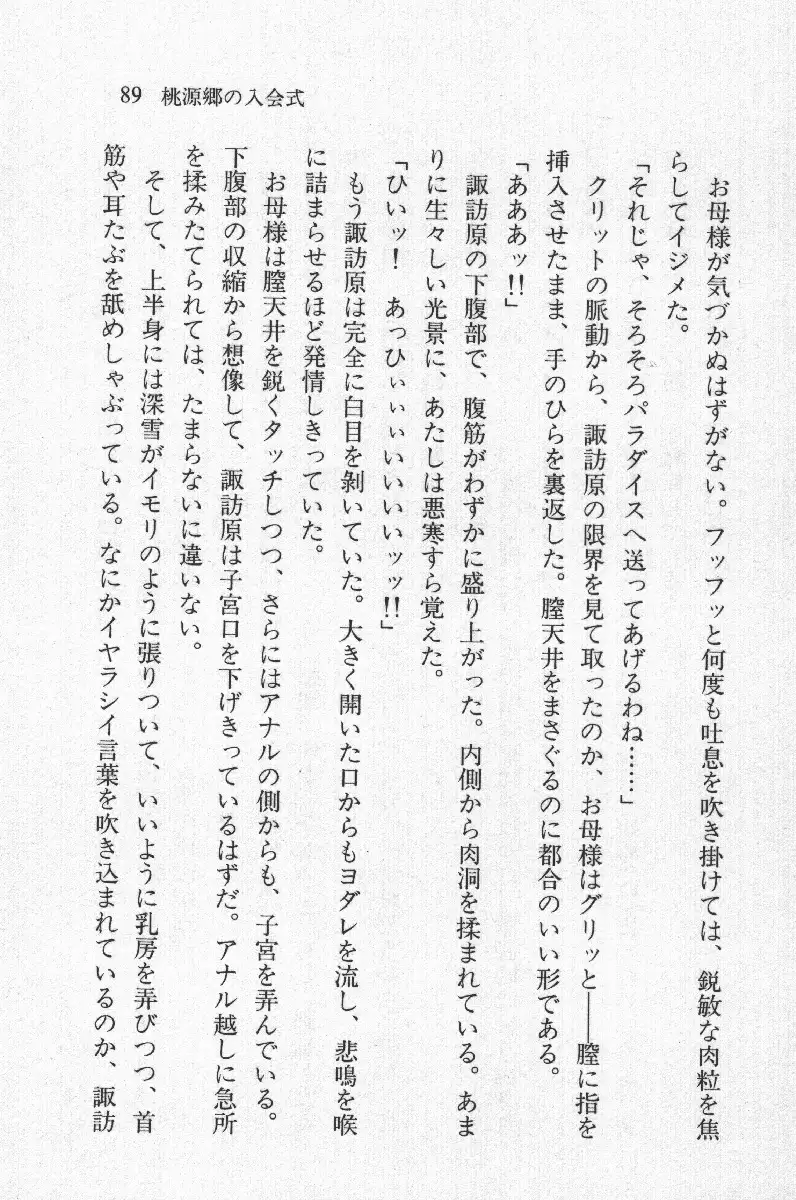 89 桃源郷の入会式
お母様が気づかぬはずがない。フッフッと何度も吐息を吹き掛けては、鋭敏な肉粒を焦
らしてイジメた。
「それじゃ、そろそろパラダイスへ送ってあげるわね……」
クリットの脈動から、諏訪原の限界を見て取ったのか、お母様はグリッと――膣に指を
挿入させたまま、手のひらを裏返した。膣天井をまさぐるのに都合のいい形である。
「あああッ!!」
諏訪原の下腹部で、腹筋がわずかに盛り上がった。内側から肉洞を揉まれている。あま
りに生々しい光景に、あたしは悪寒すら覚えた。
「ひいッ！　あっひぃぃぃいいいいッッ!!」
もう諏訪原は完全に白目を剝いていた。大きく開いた口からもヨダレを流し、悲鳴を喉
に詰まらせるほど発情しきっていた。
お母様は膣天井を鋭くタッチしつつ、さらにはアナルの側からも、子宮を弄んでいる。
下腹部の収縮から想像して、諏訪原は子宮口を下げきっているはずだ。アナル越しに急所
を揉みたてられては、たまらないに違いない。
そして、上半身には深雪がイモリのように張りついて、いいように乳房を弄びつつ、首
筋や耳たぶを舐めしゃぶっている。なにかイヤラシイ言葉を吹き込まれているのか、諏訪